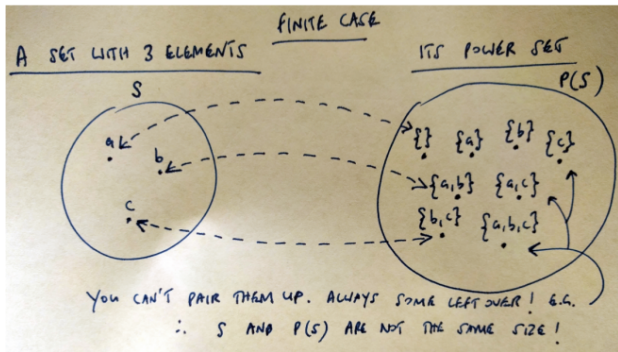 FINITE CASE
A SET WITH 3 ELEMENTS
ITS POWER SET
S
P(S)
a
b
c
{} {a} {b} {c}
{a,b} {a,c}
{b,c} {a,b,c}
YOU CAN'T PAIR THEM UP. ALWAYS SOME LEFT OVER! E.G.
∴ S AND P(S) ARE NOT THE SAME SIZE!